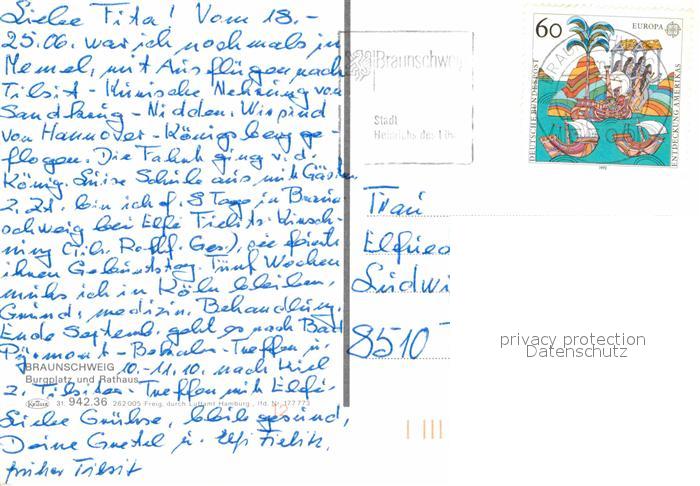 Liebe Fita! Vom 18.-
25.06. war ich nochmals in
Memel, mit Ausflügen nach
Tilsit - Kurische Nehrung von
Sandkrug - Nidden. Wir sind
von Hannover - Königsberg ge-
flogen. Die Fahrt ging v. d.
König. Luise Schule aus mit Gästen
z. Zt. bin ich f. 8 Tage in Braun
schweig bei Elfi
ning (Tils. Ges.), sie feierte
ihren Geburtstag. Fünf Wochen
muß ich in Köln bleiben,
Grund, medizin. Behandlung.
Ende Septemb. geht es nach Bad
Pyrmont - Treffen u.
10.-11.10. nach Kiel
z. Tilsiter-Treffen mit Elfi.
Liebe Grüße, bleib gesund,
Deine Gretel u. Elfi
früher Tilsit
BRAUNSCHWEIG
Burgplatz und Rathaus
Krüger 31. 942.36 262005 Freig. durch Luftamt Hamburg, lfd. Nr. 177773
Braunschweig
Stadt
Heinrichs des Lö
60
EUROPA
DEUTSCHE BUNDESPOST
ENTDECKUNG AMERIKAS
1992
Frau
Elfried
Ludwi
8510
privacy protection
Datenschutz